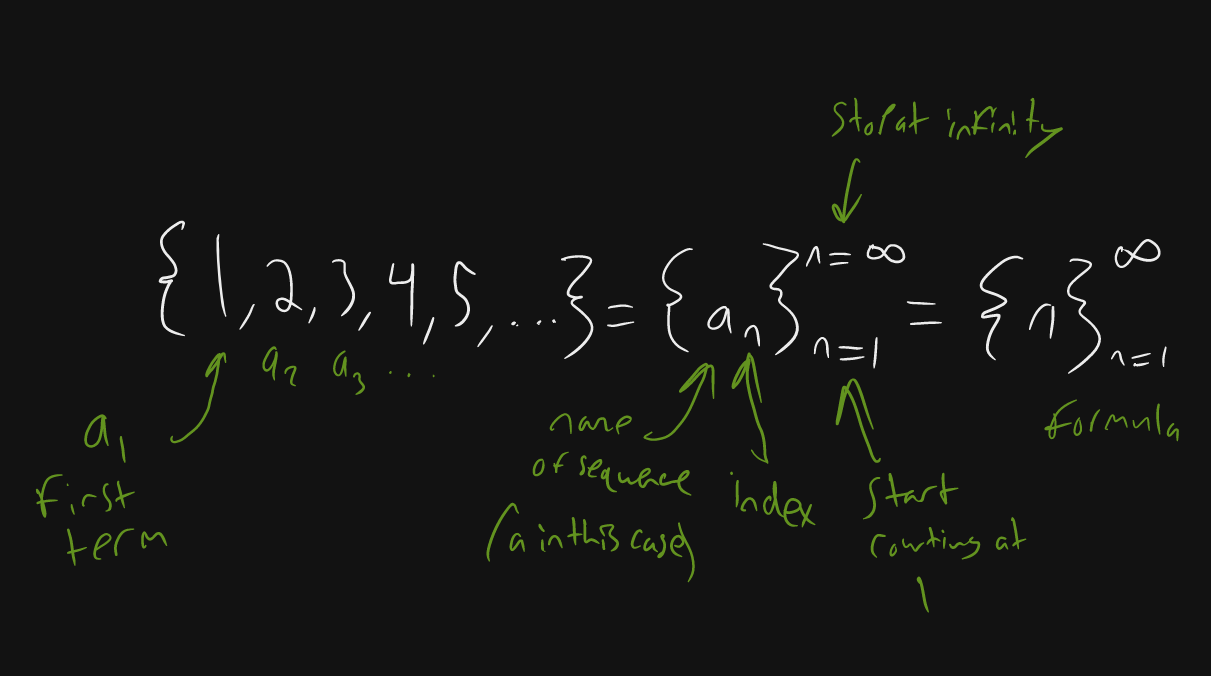 Stop at infinity
{1, 2, 3, 4, 5, ...} = {aₙ}ₙ₌₁ⁿ⁼∞ = {n}ₙ₌₁∞
a₂ a₃ ...
a₁
first
term
name
of sequence
(a in this case)
index
Start
counting at
1
formula